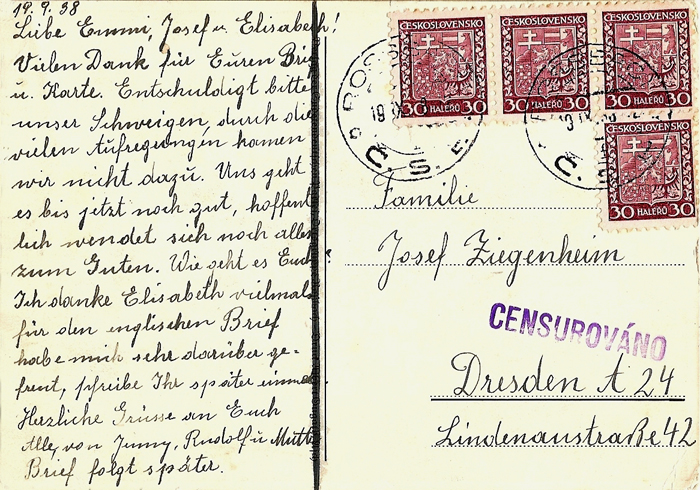 19.9.38
Liebe Emmi, Josef u. Elisabeth!
Vielen Dank für Euren Brief
u. Karte. Entschuldigt bitte
unser Schweigen, durch die
vielen Aufregungen kamen
wir nicht dazu. Uns geht
es bis jetzt noch gut, hoffent
lich wendet sich noch alles
zum Guten. Wie geht es Euch?
Ich danke Elisabeth vielmals
für den englischen Brief
habe mich sehr darüber ge-
freut, schreibe Ihr später einmal
Herzliche Grüsse an Euch
Alle, von Junny, Rudolf u Mutti
Brief folgt später.
ČESKOSLOVENSKO
30 HALÉŘŮ 30
ČESKOSLOVENSKO
30 HALÉŘŮ 30
ČESKOSLOVENSKO
30 HALÉŘŮ 30
ČESKOSLOVENSKO
30 HALÉŘŮ 30
Č. S. P.
Č. S.
Familie
Josef Ziegenheim
CENSUROVÁNO
Dresden A 24
Lindenaustraße 42